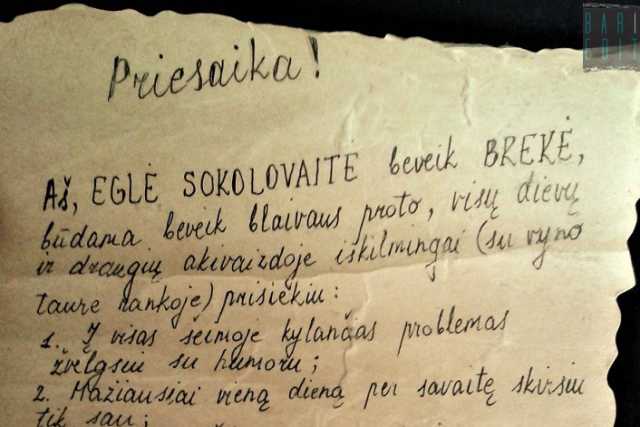 BARI
Priesaika!
Aš, EGLĖ SOKOLOVAITĖ beveik BREKĖ,
būdama beveik blaivaus proto, visų dievų
ir draugių akivaizdoje iškilmingai (su vyno
taure rankoje) prisiekiu:
1. Į visas šeimoje kylančias problemas
žvelgsiu su humoru;
2. Mažiausiai vieną dieną per savaitę skirsiu
tik sau;